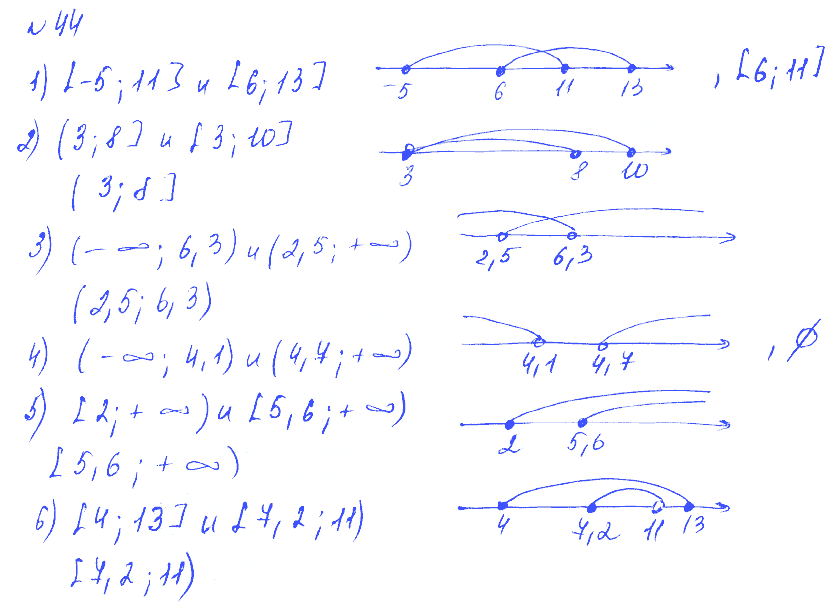 № 44
1) [-5; 11] и [6; 13]
-5 6 11 13
, [6; 11]
2) (3; 8] и [3; 10]
3 8 10
(3; 8]
3) (-∞; 6,3) и (2,5; +∞)
2,5 6,3
(2,5; 6,3)
4) (-∞; 4,1) и (4,7; +∞)
4,1 4,7
, ∅
5) [2; +∞) и [5,6; +∞)
2 5,6
[5,6; +∞)
6) [4; 13] и [7,2; 11)
4 7,2 11 13
[7,2; 11)